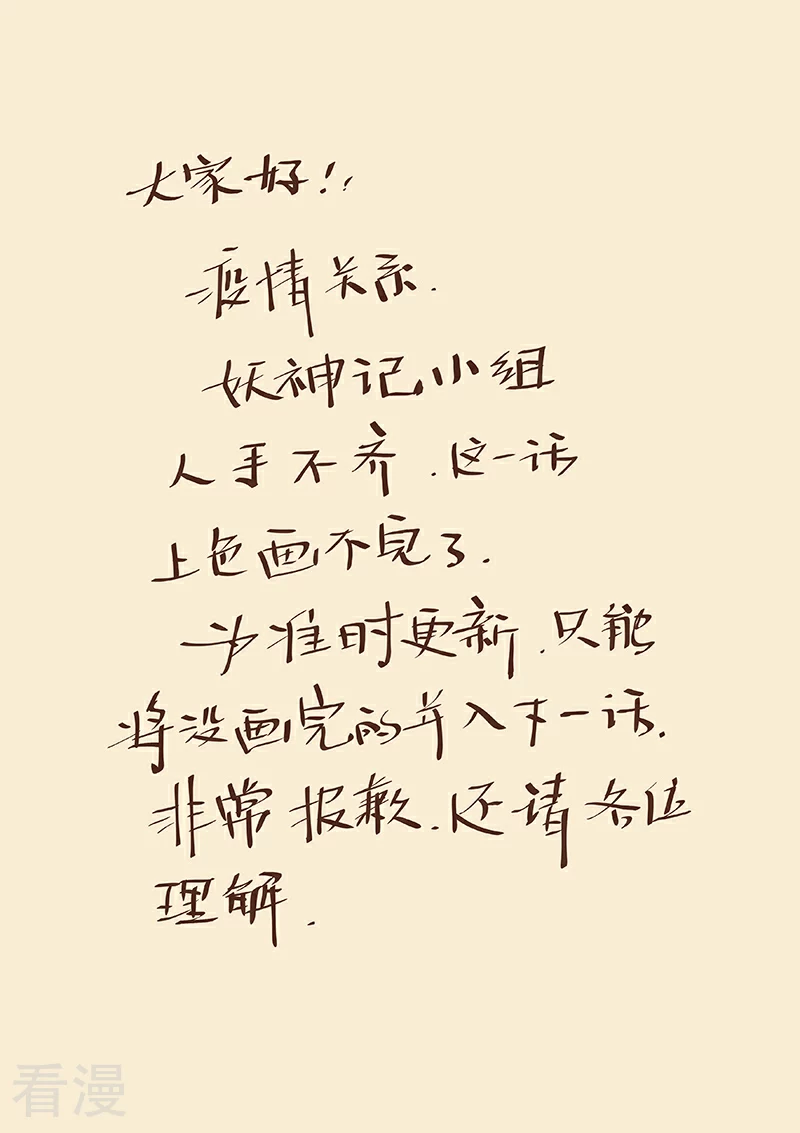 大家好!!
疫情关系.
妖神记小组
人手不齐.这一话
上色画不完了.
为准时更新.只能
将没画完的并入下一话.
非常报歉.还请各位
理解.
看漫